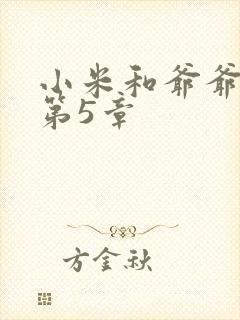 小米和爷爷
第5章
方金秋